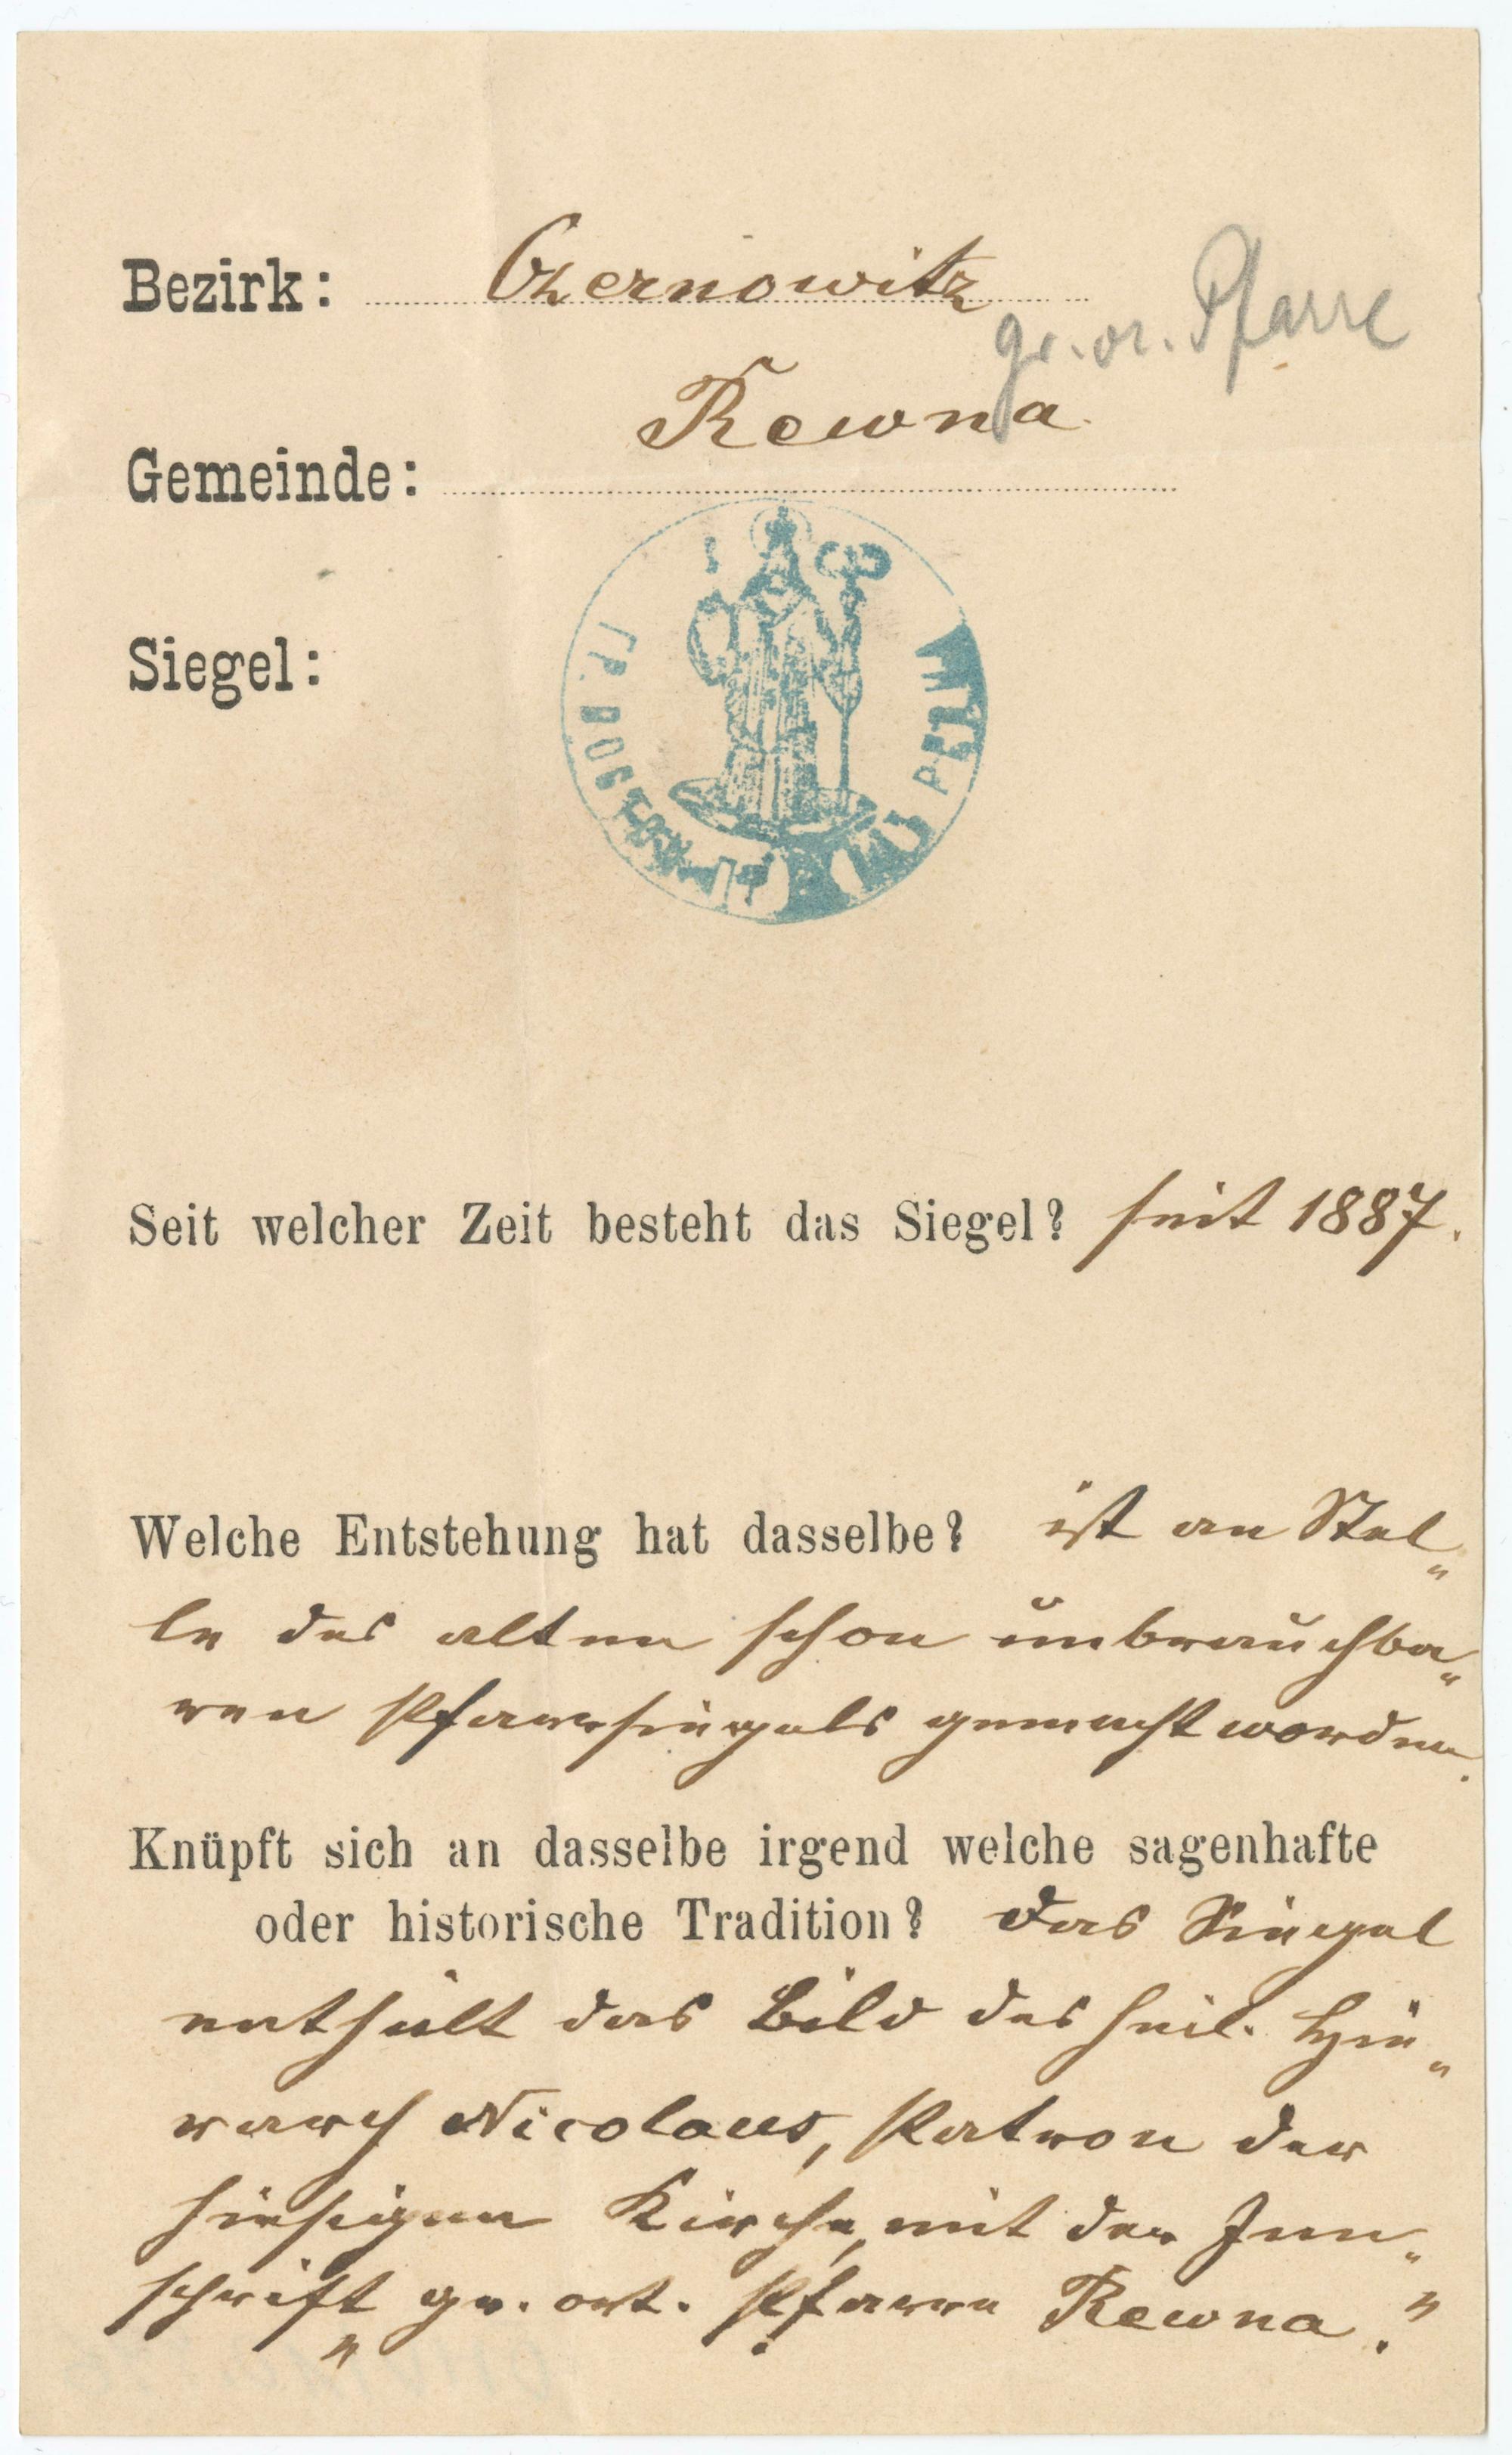 Bezirk: Czernowitz
gr. or. Pfarre
Rewna
Gemeinde:
Siegel:
Seit welcher Zeit besteht das Siegel? seit 1887.
Welche Entstehung hat dasselbe? ist an Stel„
le des alten schon unbrauchba„
ren Pfarrsiegels gemacht worden.
Knüpft sich an dasselbe irgend welche sagenhafte
oder historische Tradition? Das Siegel
enthält das Bild des heil. Hie„
rarch Nicolaus, Patron der
hiesigen Kirche, mit der Inn„
schrift „gr. ort. Pfarre Rewna."